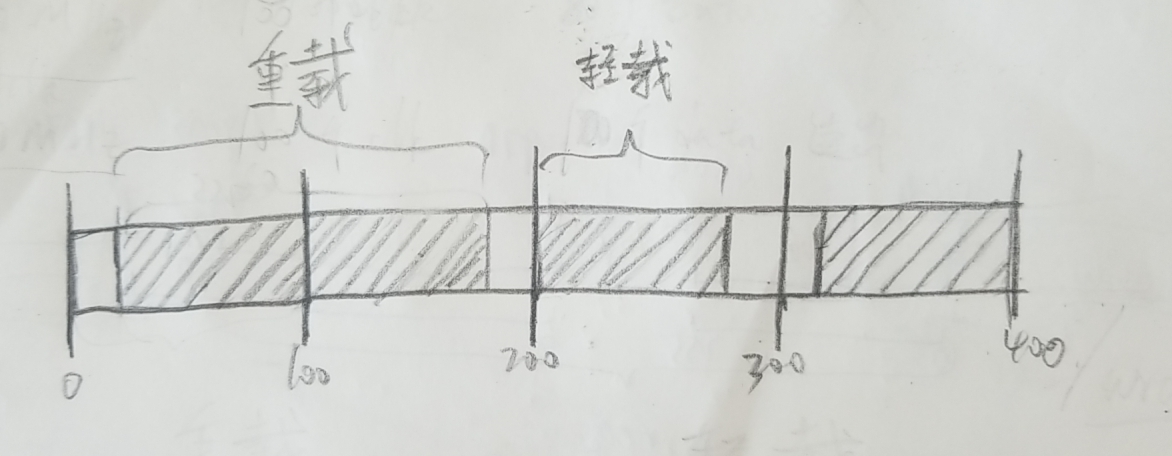 重载 轻载
0 100 200 300 400